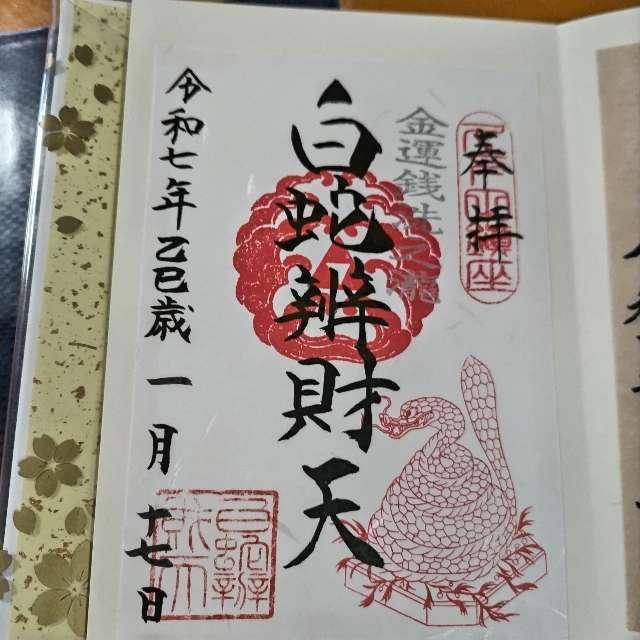 奉拝
金運銭洗之滝
白蛇辨財天
令和七年乙巳歳一月十七日
白蛇辨